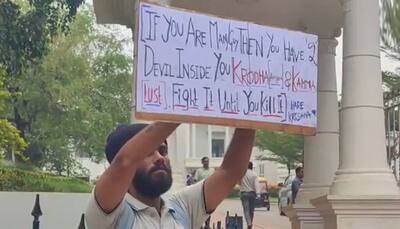 If You Are Man Then You Have 2
Devil Inside You Krodha & Kamma
[lust]. Fight It Until You Kill It]
HARE
KRISHNA